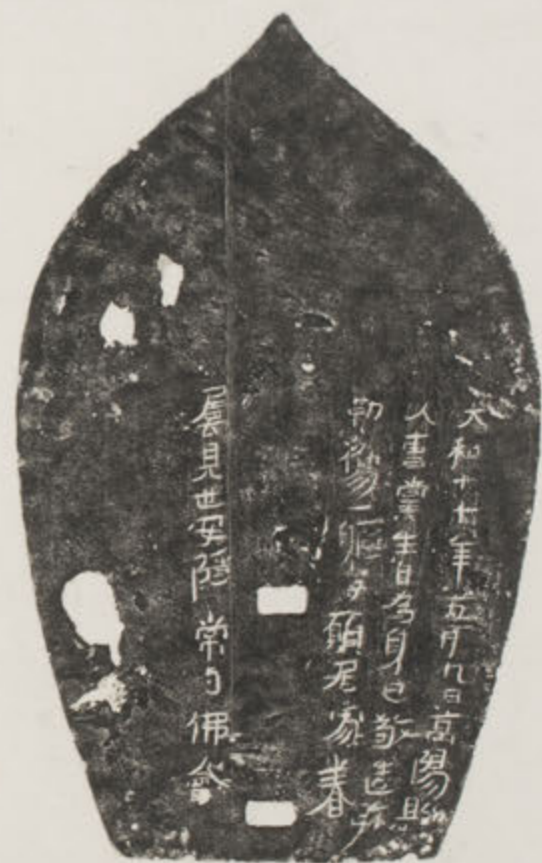 大和十六年五月九日高陽縣
人曹党生自為身己敬造弥
勒像一軀願居家眷
屬見世安隱常与佛會